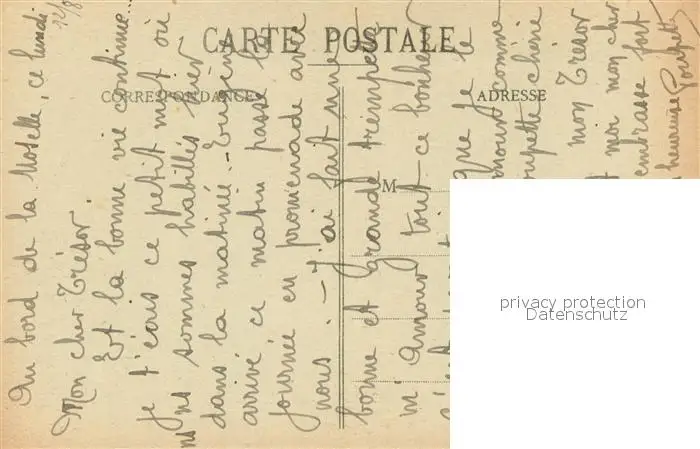 CARTE POSTALE
CORRESPONDANCE
ADRESSE
M
Au bord de la Moselle, ce lundi
12/8
Mon cher Trésor,
Et la bonne vie continue...
je t'écris ce petit mot où
ns ns sommes habillés hier
dans la matinée.
arrivé ce matin passe la
journée en promenade avec
nous. - J'ai fait une
bonne et grande trempe
m Amour tout ce bonheur
que je le
amour comme
chérie
mon Trésor
et moi mon cher
embrasse fort
heureuse Poupette
privacy protection
Datenschutz